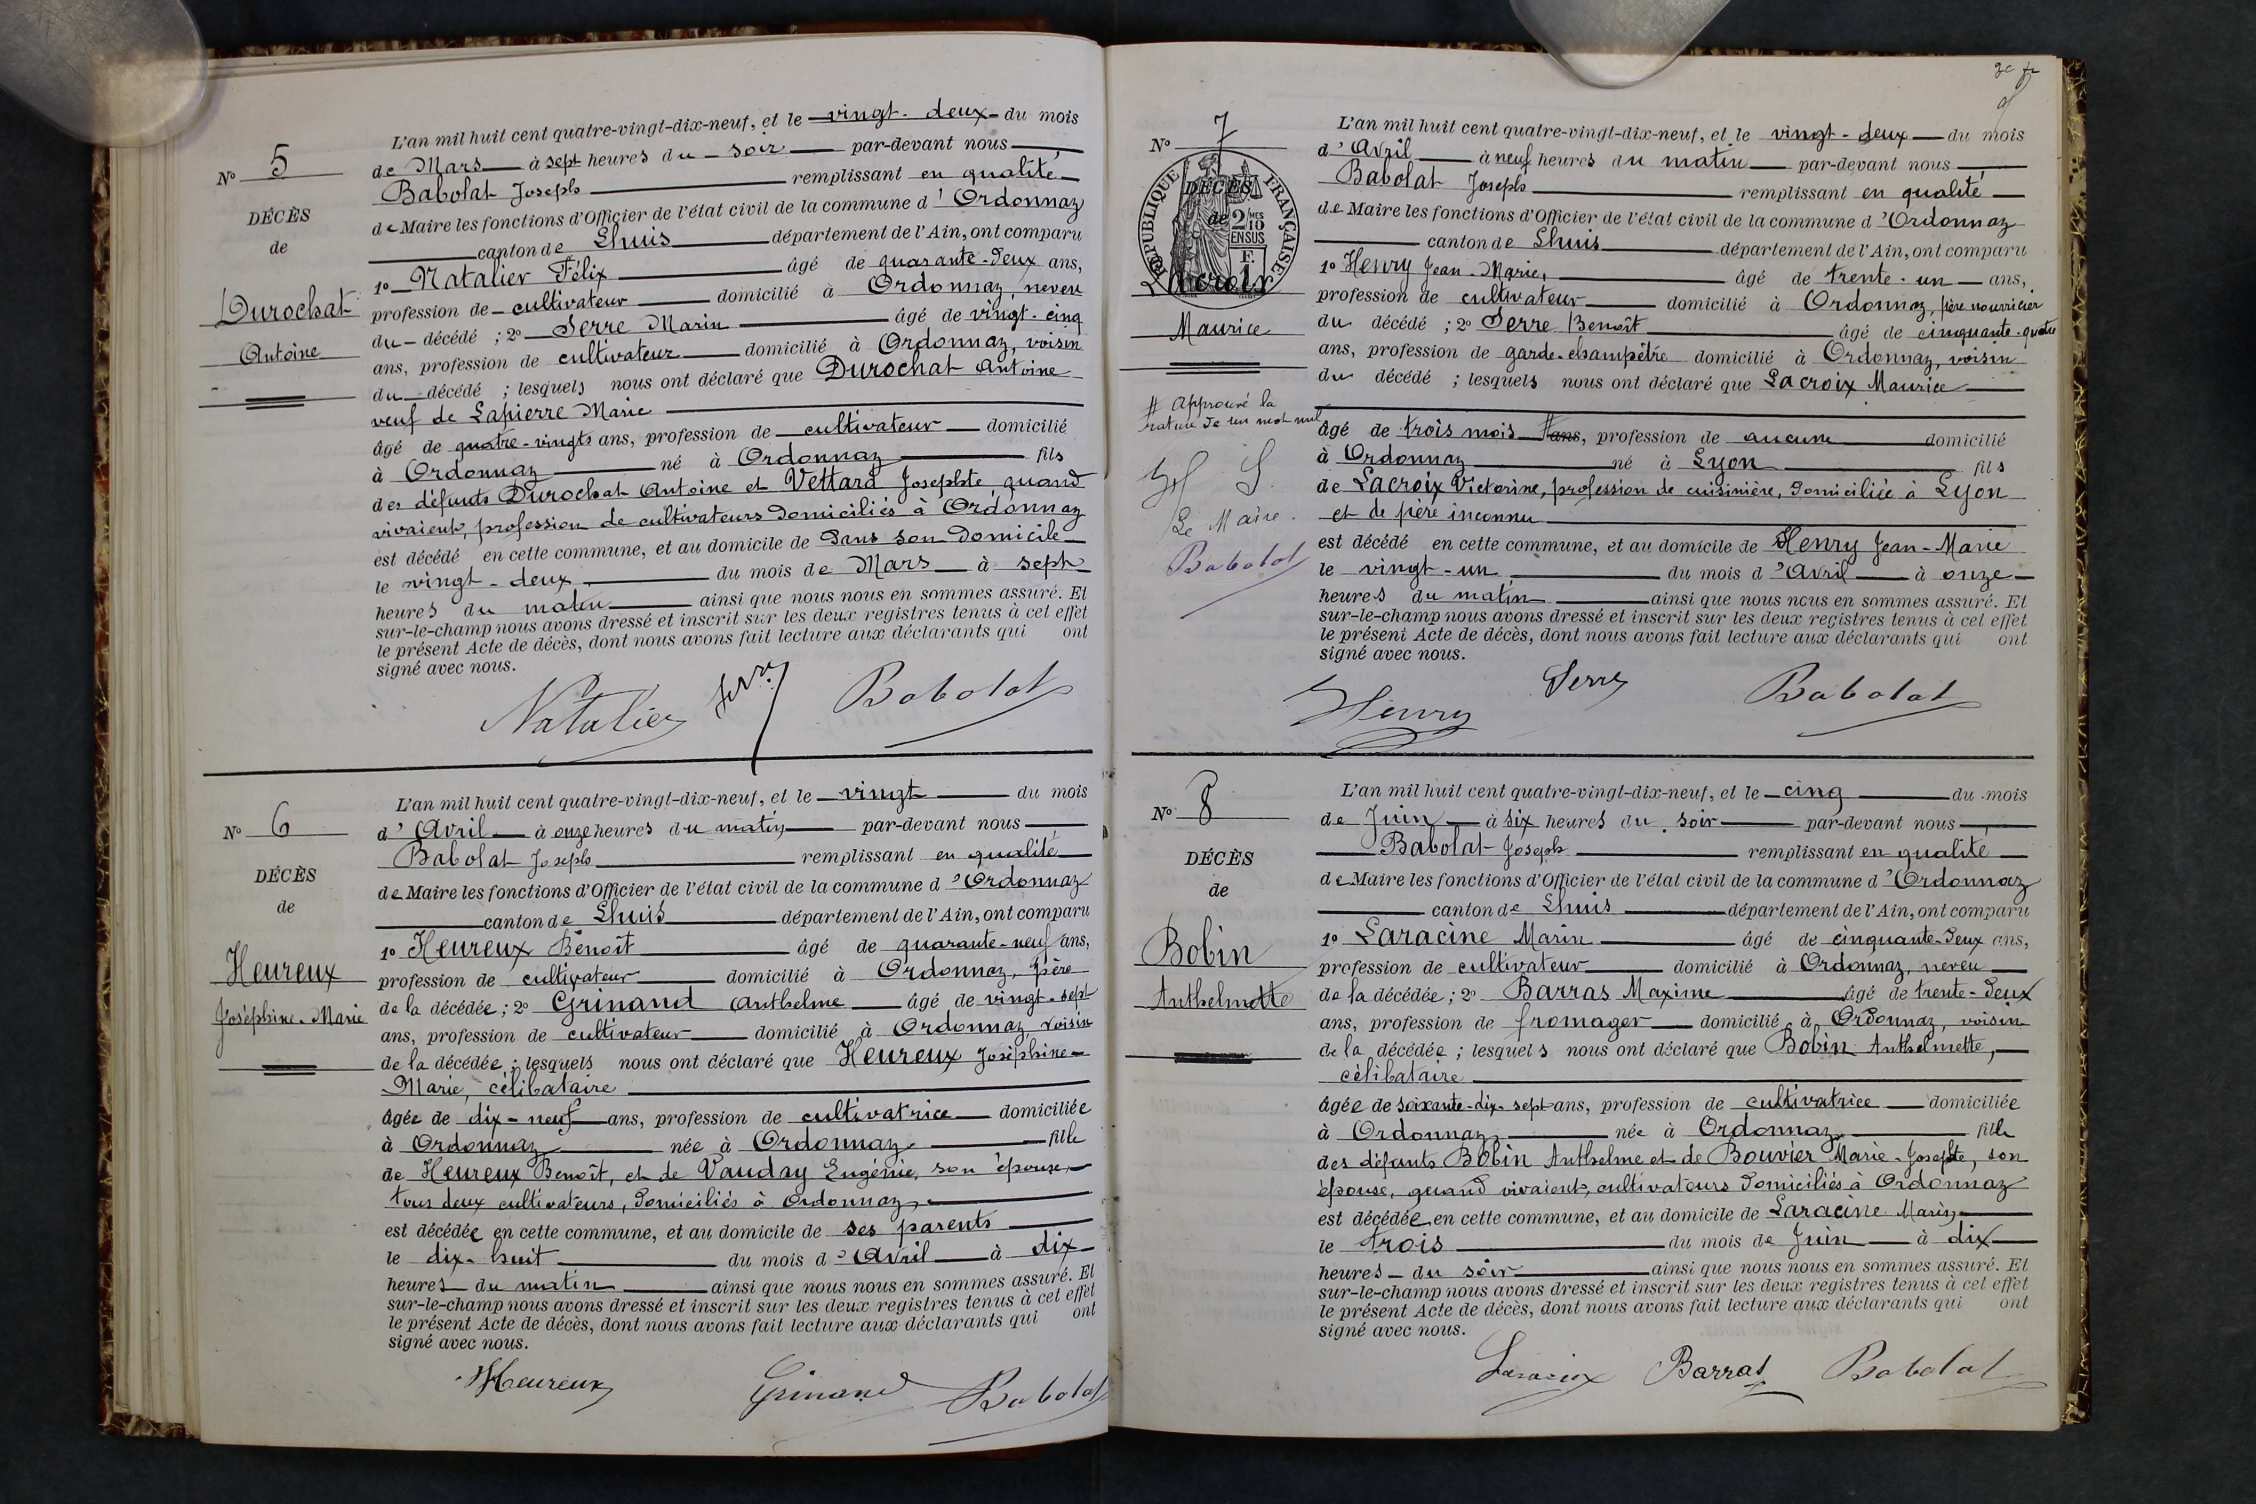 L'an mil huit cent quatre-vingt-dix-neuf, et le vingt-deux du mois
N° 5
de Mars à sept heures du soir par-devant nous
Babolat Joseph remplissant en qualité
DÉCÈS
de Maire les fonctions d'Officier de l'état civil de la commune d'Ordonnaz
de
canton de Lhuis département de l'Ain, ont comparu
1° Natalier Félix âgé de quarante-deux ans,
Durochat
profession de cultivateur domicilié à Ordonnaz, neveu
du décédé ; 2° Serre Marin âgé de vingt-cinq
Antoine
ans, profession de cultivateur domicilié à Ordonnaz, voisin
du décédé ; lesquels nous ont déclaré que Durochat Antoine
veuf de Lapierre Marie
âgé de quatre-vingts ans, profession de cultivateur domicilié
à Ordonnaz né à Ordonnaz fils
des défunts Durochat Antoine et Vettard Josephte quand
vivaient, profession de cultivateurs domiciliés à Ordonnaz
est décédé en cette commune, et au domicile de dans son domicile
le vingt-deux du mois de Mars à sept
heures du matin ainsi que nous nous en sommes assuré. Et
sur-le-champ nous avons dressé et inscrit sur les deux registres tenus à cet effet
le présent Acte de décès, dont nous avons fait lecture aux déclarants qui ont
signé avec nous.
Natalier Serre Babolat
L'an mil huit cent quatre-vingt-dix-neuf, et le vingt du mois
N° 6
d'Avril à onze heures du matin par-devant nous
Babolat Joseph remplissant en qualité
DÉCÈS
de Maire les fonctions d'Officier de l'état civil de la commune d'Ordonnaz
de
canton de Lhuis département de l'Ain, ont comparu
1° Heureux Benoît âgé de quarante-neuf ans,
Heureux
profession de cultivateur domicilié à Ordonnaz, père
de la décédée ; 2° Grinand Anthelme âgé de vingt-sept
Joséphine-Marie
ans, profession de cultivateur domicilié à Ordonnaz voisin
de la décédée ; lesquels nous ont déclaré que Heureux Joséphine-
Marie, célibataire
âgée de dix-neuf ans, profession de cultivatrice domiciliée
à Ordonnaz née à Ordonnaz fille
de Heureux Benoît, et de Vauday Eugénie, son épouse,
tous deux cultivateurs, domiciliés à Ordonnaz,
est décédée en cette commune, et au domicile de ses parents
le dix-huit du mois d'Avril à dix
heures du matin ainsi que nous nous en sommes assuré. Et
sur-le-champ nous avons dressé et inscrit sur les deux registres tenus à cet effet
le présent Acte de décès, dont nous avons fait lecture aux déclarants qui ont
signé avec nous.
Heureux Grinand Babolat
L'an mil huit cent quatre-vingt-dix-neuf, et le vingt-deux du mois
N° 7
d'Avril à neuf heures du matin par-devant nous
Babolat Joseph remplissant en qualité
RÉPUBLIQUE FRANÇAISE
DÉCÈS
de
2/10MES
EN SUS
de Maire les fonctions d'Officier de l'état civil de la commune d'Ordonnaz
canton de Lhuis département de l'Ain, ont comparu
1° Henry Jean-Marie, âgé de trente-un ans,
Lacroix
profession de cultivateur domicilié à Ordonnaz, père nourricier
du décédé ; 2° Serre Benoît âgé de cinquante-quatre
Maurice
ans, profession de garde-champêtre domicilié à Ordonnaz, voisin
du décédé ; lesquels nous ont déclaré que Lacroix Maurice
# Approuvé la
rature de un mot nul
âgé de trois mois # ans, profession de aucune domicilié
à Ordonnaz né à Lyon fils
de Lacroix Victorine, profession de cuisinière, domiciliée à Lyon
et de père inconnu
H S.
Le Maire.
Babolat
est décédé en cette commune, et au domicile de Henry Jean-Marie
le vingt-un du mois d'Avril à onze
heures du matin ainsi que nous nous en sommes assuré. Et
sur-le-champ nous avons dressé et inscrit sur les deux registres tenus à cet effet
le présent Acte de décès, dont nous avons fait lecture aux déclarants qui ont
signé avec nous.
Henry Serre Babolat
L'an mil huit cent quatre-vingt-dix-neuf, et le cinq du mois
N° 8
de Juin à six heures du soir par-devant nous
Babolat Joseph remplissant en qualité
DÉCÈS
de Maire les fonctions d'Officier de l'état civil de la commune d'Ordonnaz
de
canton de Lhuis département de l'Ain, ont comparu
1° Laracine Marin âgé de cinquante-deux ans,
Bobin
profession de cultivateur domicilié à Ordonnaz, neveu
de la décédée ; 2° Barras Maxime âgé de trente-deux
Anthelmette
ans, profession de fromager domicilié à Ordonnaz, voisin
de la décédée ; lesquels nous ont déclaré que Bobin Anthelmette,
célibataire
âgée de soixante-dix-sept ans, profession de cultivatrice domiciliée
à Ordonnaz, née à Ordonnaz fille
des défunts Bobin Anthelme et de Bouvier Marie-Josephte, son
épouse, quand vivaient, cultivateurs domiciliés à Ordonnaz
est décédée en cette commune, et au domicile de Laracine Marin
le trois du mois de Juin à dix
heures du soir ainsi que nous nous en sommes assuré. Et
sur-le-champ nous avons dressé et inscrit sur les deux registres tenus à cet effet
le présent Acte de décès, dont nous avons fait lecture aux déclarants qui ont
signé avec nous.
Laracine Barras Babolat